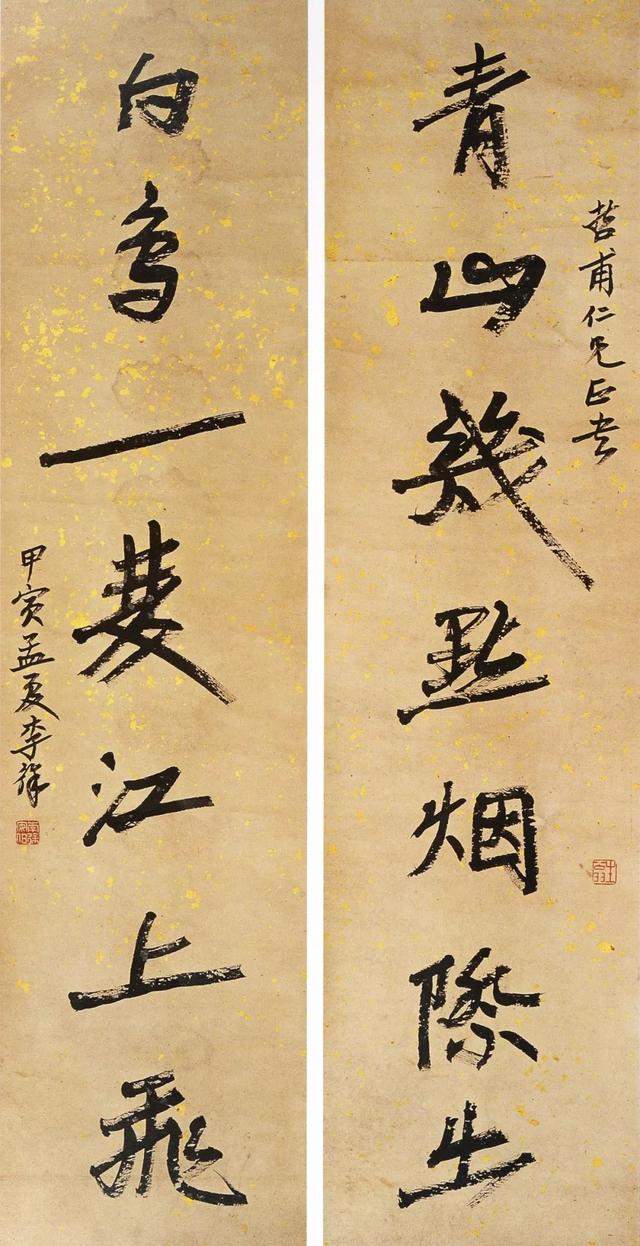 青山幾點烟際出
哲甫仁兄正
白鳥一雙江上飛
甲寅孟夏李祥